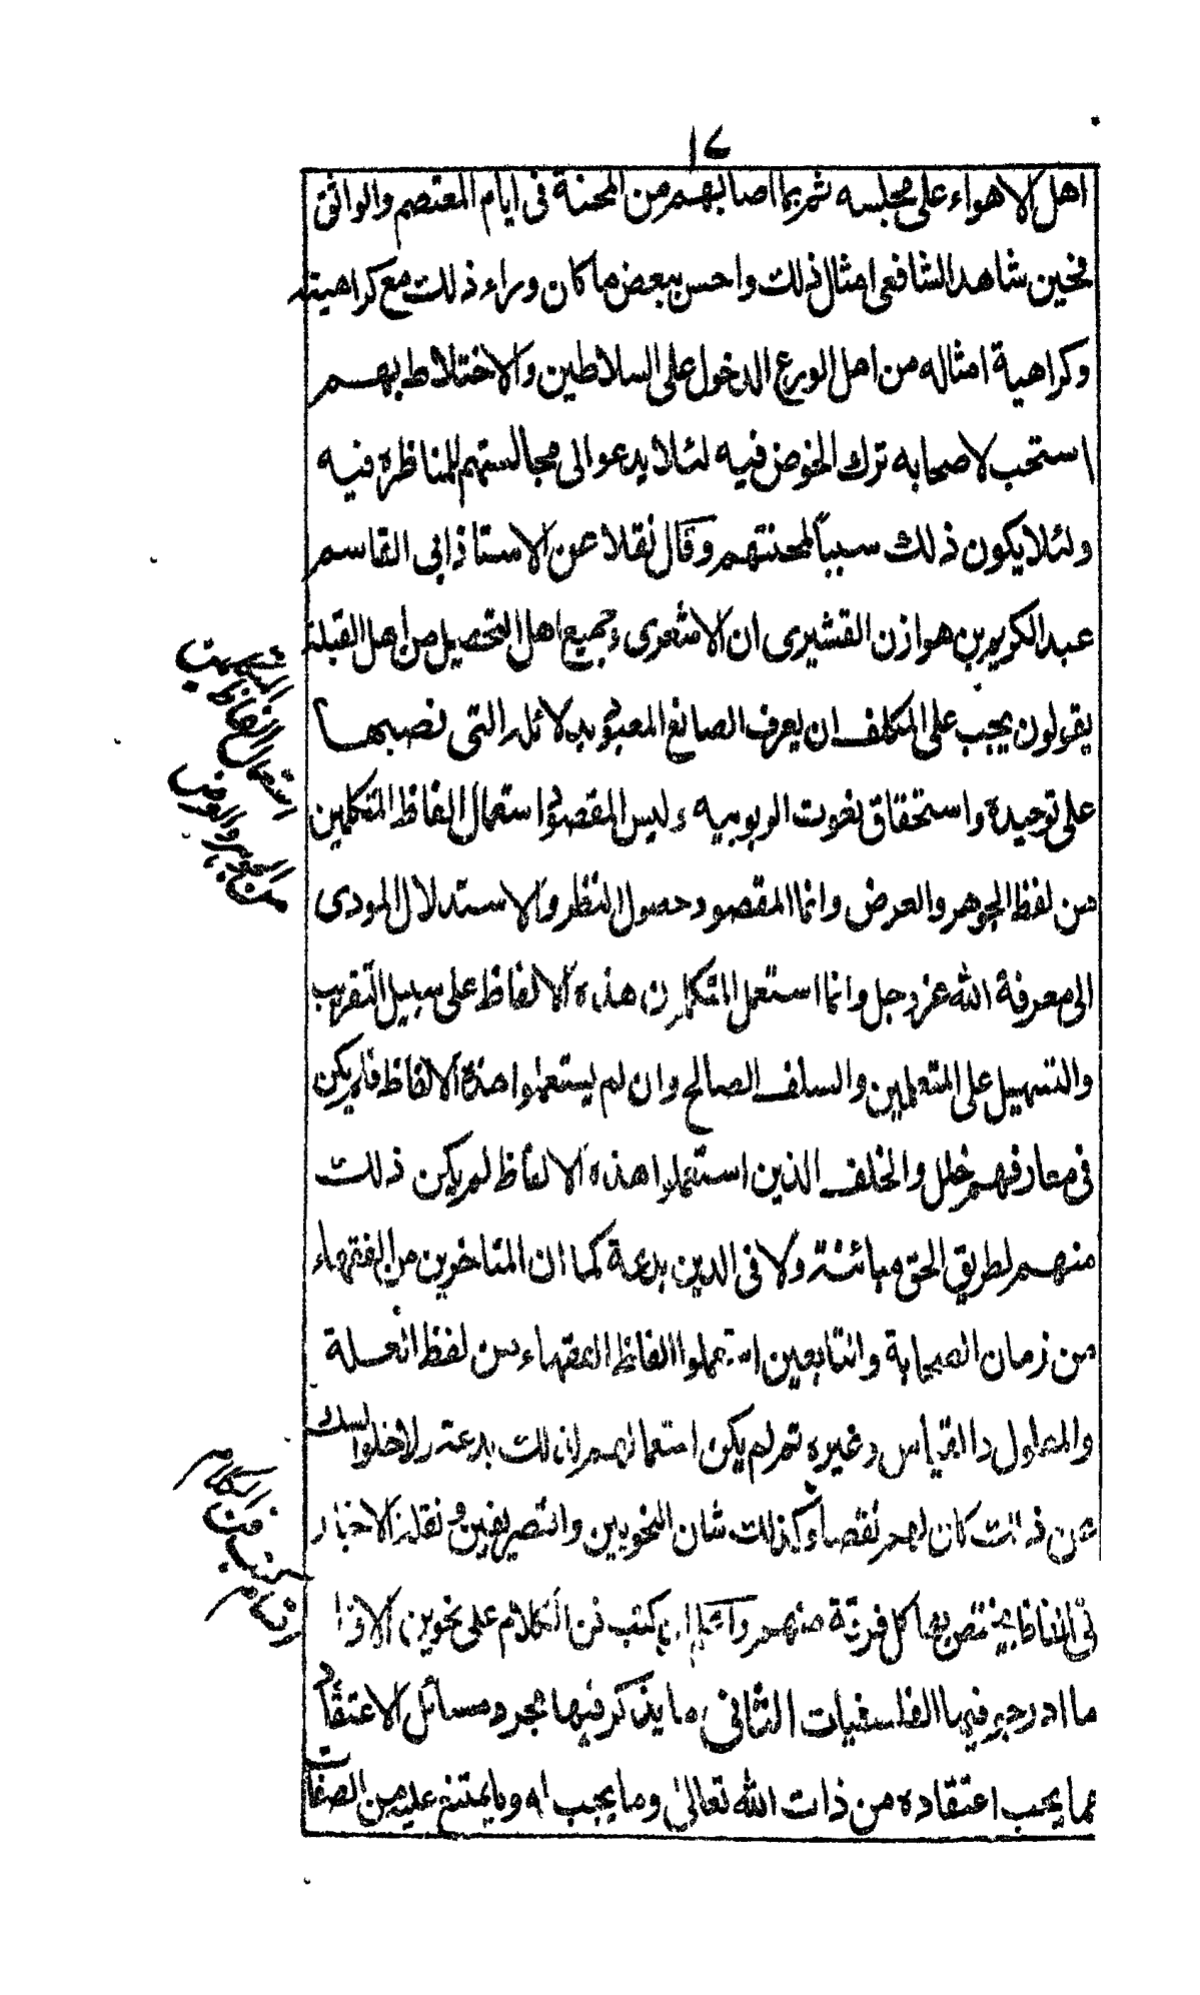 ١٧
اهل الاهواء على مجلسه ثم ربما اصابهم من المحنة فى ايام المعتصم والواثق
فحين شاهد الشافعى امثال ذلك واحس ببعض ما كان وراء ذلك مع كراهيته
وكراهية امثاله من اهل الورع الدخول على السلاطين والاختلاط بهم
استحب لاصحابه ترك الخوض فيه لئلا يدعو الى مجالستهم للمناظره فيه
ولئلا يكون ذلك سبباً لمحنتهم وقال نقلا عن الاستاذ ابى القاسم
عبد الكريم بن هوازن القشيرى ان الاشعرى وجميع اهل التحصيل من اهل القبلة
يقولون يجب على المكلف ان يعرف الصانع المعبود بدلائله التى نصبها
على توحيده واستحقاق نعوت الربوبيه وليس المقصود استعمال الفاظ المتكلمين
من لفظ الجوهر والعرض وانما المقصود حصول النظر والاستدلال المودى
الى معرفة الله عز وجل وانما استعمل المتكلمون هذه الالفاظ على سبيل التقريب
والتسهيل على المتعلمين والسلف الصالح وان لم يستعملوا هذه الالفاظ فلم يكن
فى معارفهم خلل والخلف الذين استعملوا هذه الالفاظ لم يكن ذلك
منهم لطريق الحق مبائنة ولا فى الدين بدعة كما ان المتاخرين من الفقهاء
من زمان الصحابة والتابعين استعملوا الفاظ الفقهاء من لفظ العلة
والمعلول والقياس وغيره ثم لم يكن استعمالهم لذلك بدعة ولا خلو السلف
عن ذلك كان لهم نقصا وكذلك شان النحويين والتصريفين ونقلة الاخبار
فى الفاظ يختص بها كل فرقة منهم واعلم ان كتب فن الكلام على نحوين الاول
ما ادرجر فيها الفلسفيات الثانى ما يذكر فيها مجرد مسائل الاعتقاد
مما يجب اعتقاده من ذات الله تعالى وما يجب له وما يمتنع عليه من الصفات
استعمال الفاظ
من الجوهر والعرض
اقسام
كتب فن الكلام